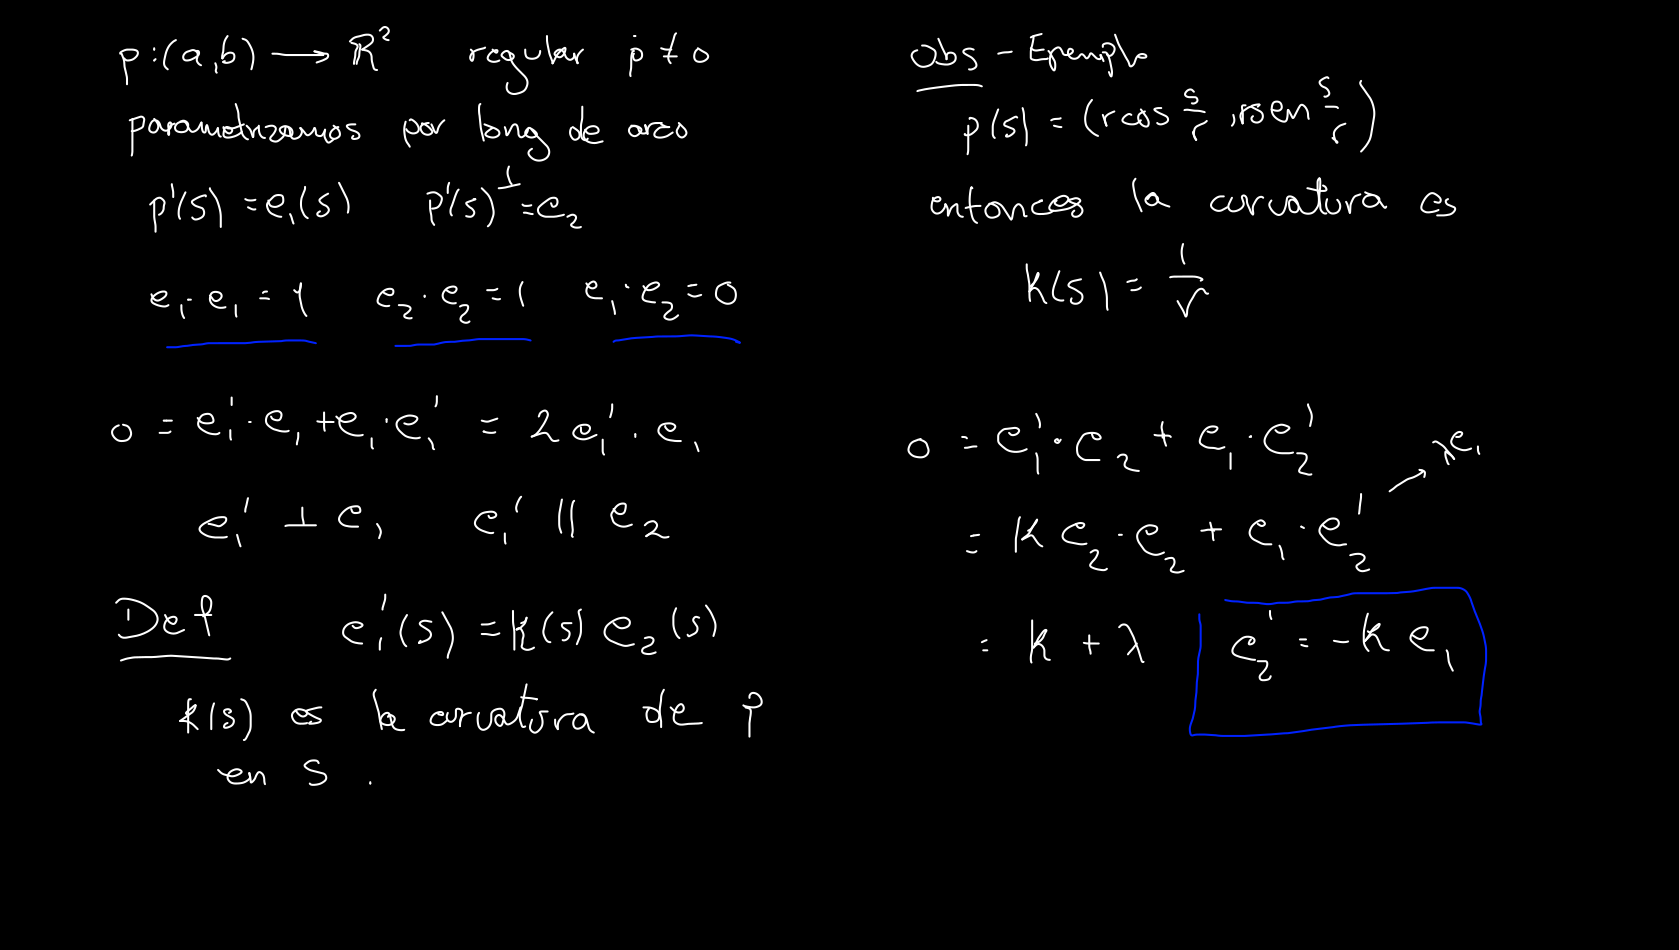 p:(a,b) ⟶ ℝ² regular ṗ ≠ 0
parametrizamos por long de arco
p'(s) = e₁(s) p'(s)^⊥ = e₂
e₁·e₁ = 1 e₂·e₂ = 1 e₁·e₂ = 0
0 = e₁'·e₁ + e₁·e₁' = 2e₁'·e₁
e₁' ⊥ e₁ e₁' || e₂
Def e₁'(s) = k(s) e₂(s)
k(s) es la curvatura de p
en s.
Obs - Ejemplo
p(s) = (r cos s/r, r sen s/r)
entonces la curvatura es
k(s) = 1/r
0 = e₁'·e₂ + e₁·e₂'
= k e₂·e₂ + e₁·e₂' → λe₁
= k + λ e₂' = -k e₁